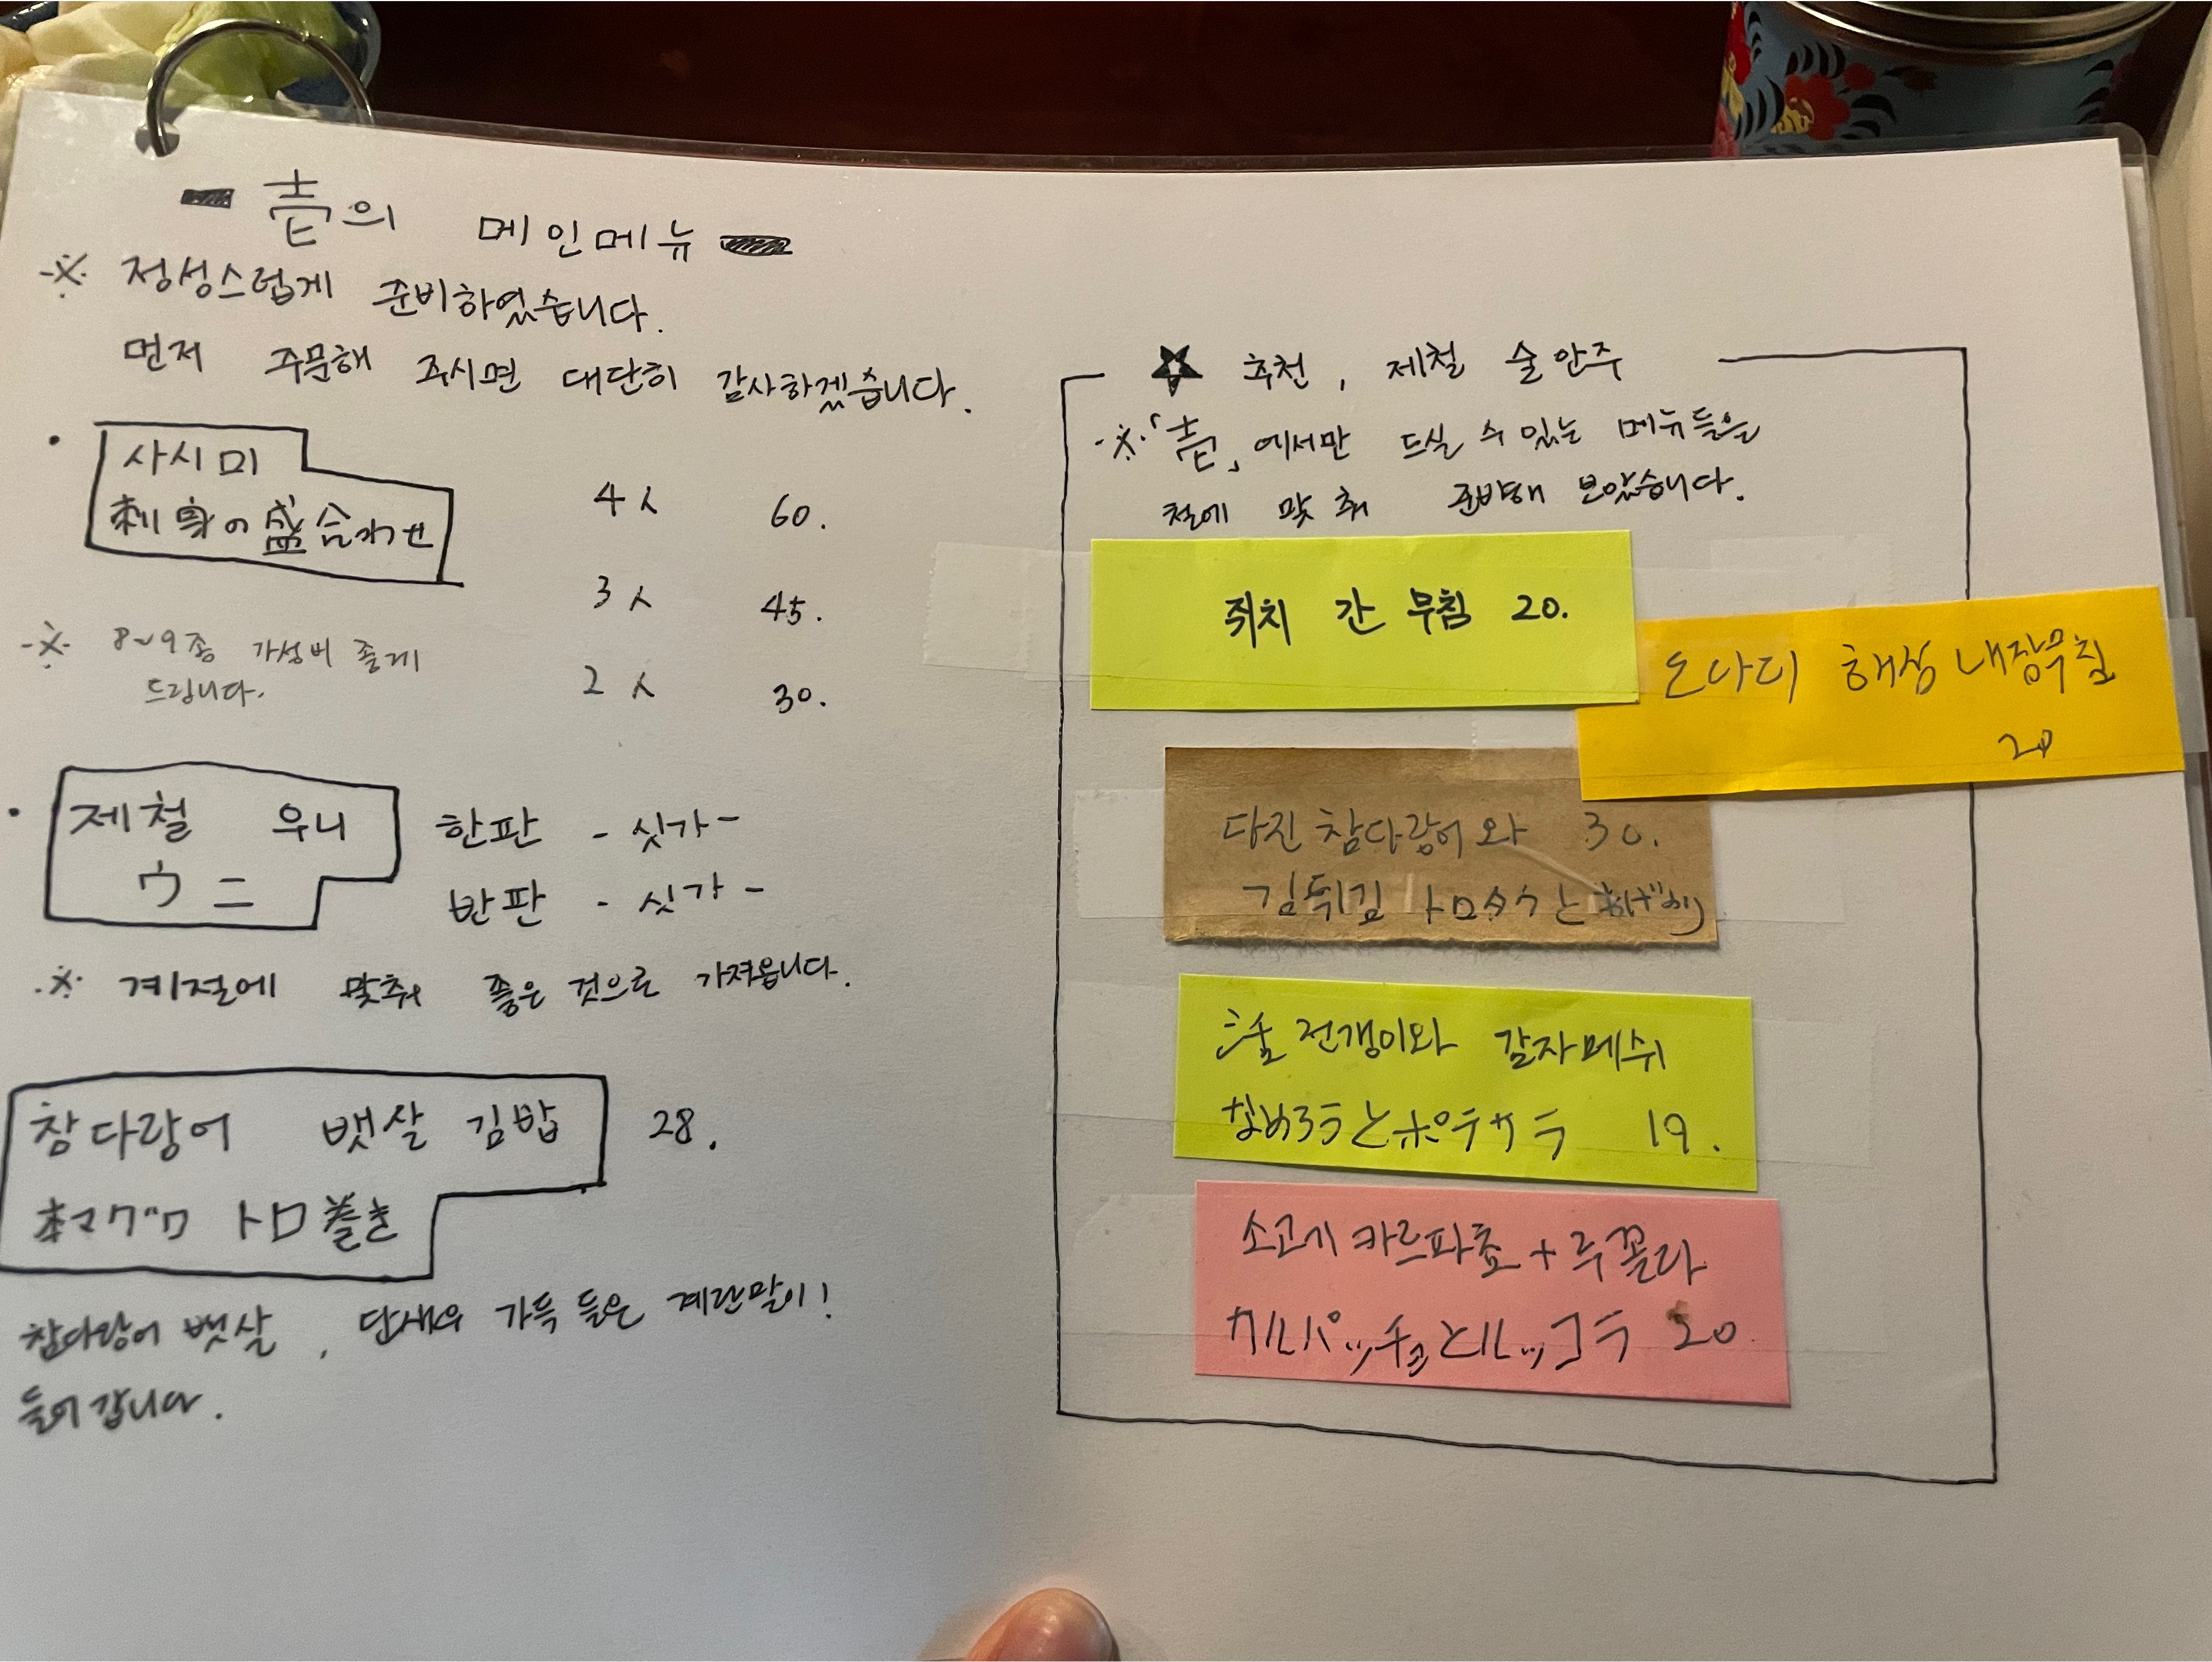 壱의 메인메뉴
※ 정성스럽게 준비하였습니다.
먼저 주문해 주시면 대단히 감사하겠습니다.
• 사시미
刺身の盛合わせ
4人 60.
3人 45.
2人 30.
※ 8~9종 가성비 좋게
드립니다.
• 제철 우니
ウニ
한판 - 싯가 -
반판 - 싯가 -
※ 계절에 맞춰 좋은 것으로 가져옵니다.
참다랑어 뱃살 김밥 28.
本マグロ トロ巻き
참다랑어 뱃살, 단새우 가득 들은 계란말이!
들어갑니다.
★ 추천, 제철 술안주
※「壱」에서만 드실 수 있는 메뉴들을
철에 맞춰 준비해 보았습니다.
쥐치 간 무침 20.
도다리 해삼 내장무침
20
다진 참다랑어와 30.
김튀김 トロタクと
活 전갱이와 감자메쉬
なめろうとポテサラ 19.
소고기 카르파쵸 + 루꼴라
カルパッチョとルッコラ 20.